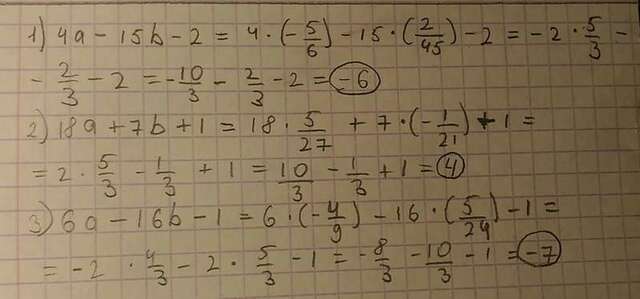 1) 4a - 15b - 2 = 4 · (-5/6) - 15 · (2/45) - 2 = -2 · 5/3 -
- 2/3 - 2 = -10/3 - 2/3 - 2 = -6
2) 18a + 7b + 1 = 18 · 5/27 + 7 · (-1/21) + 1 =
= 2 · 5/3 - 1/3 + 1 = 10/3 - 1/3 + 1 = 4
3) 6a - 16b - 1 = 6 · (-4/9) - 16 · (5/24) - 1 =
= -2 · 4/3 - 2 · 5/3 - 1 = -8/3 - 10/3 - 1 = -7